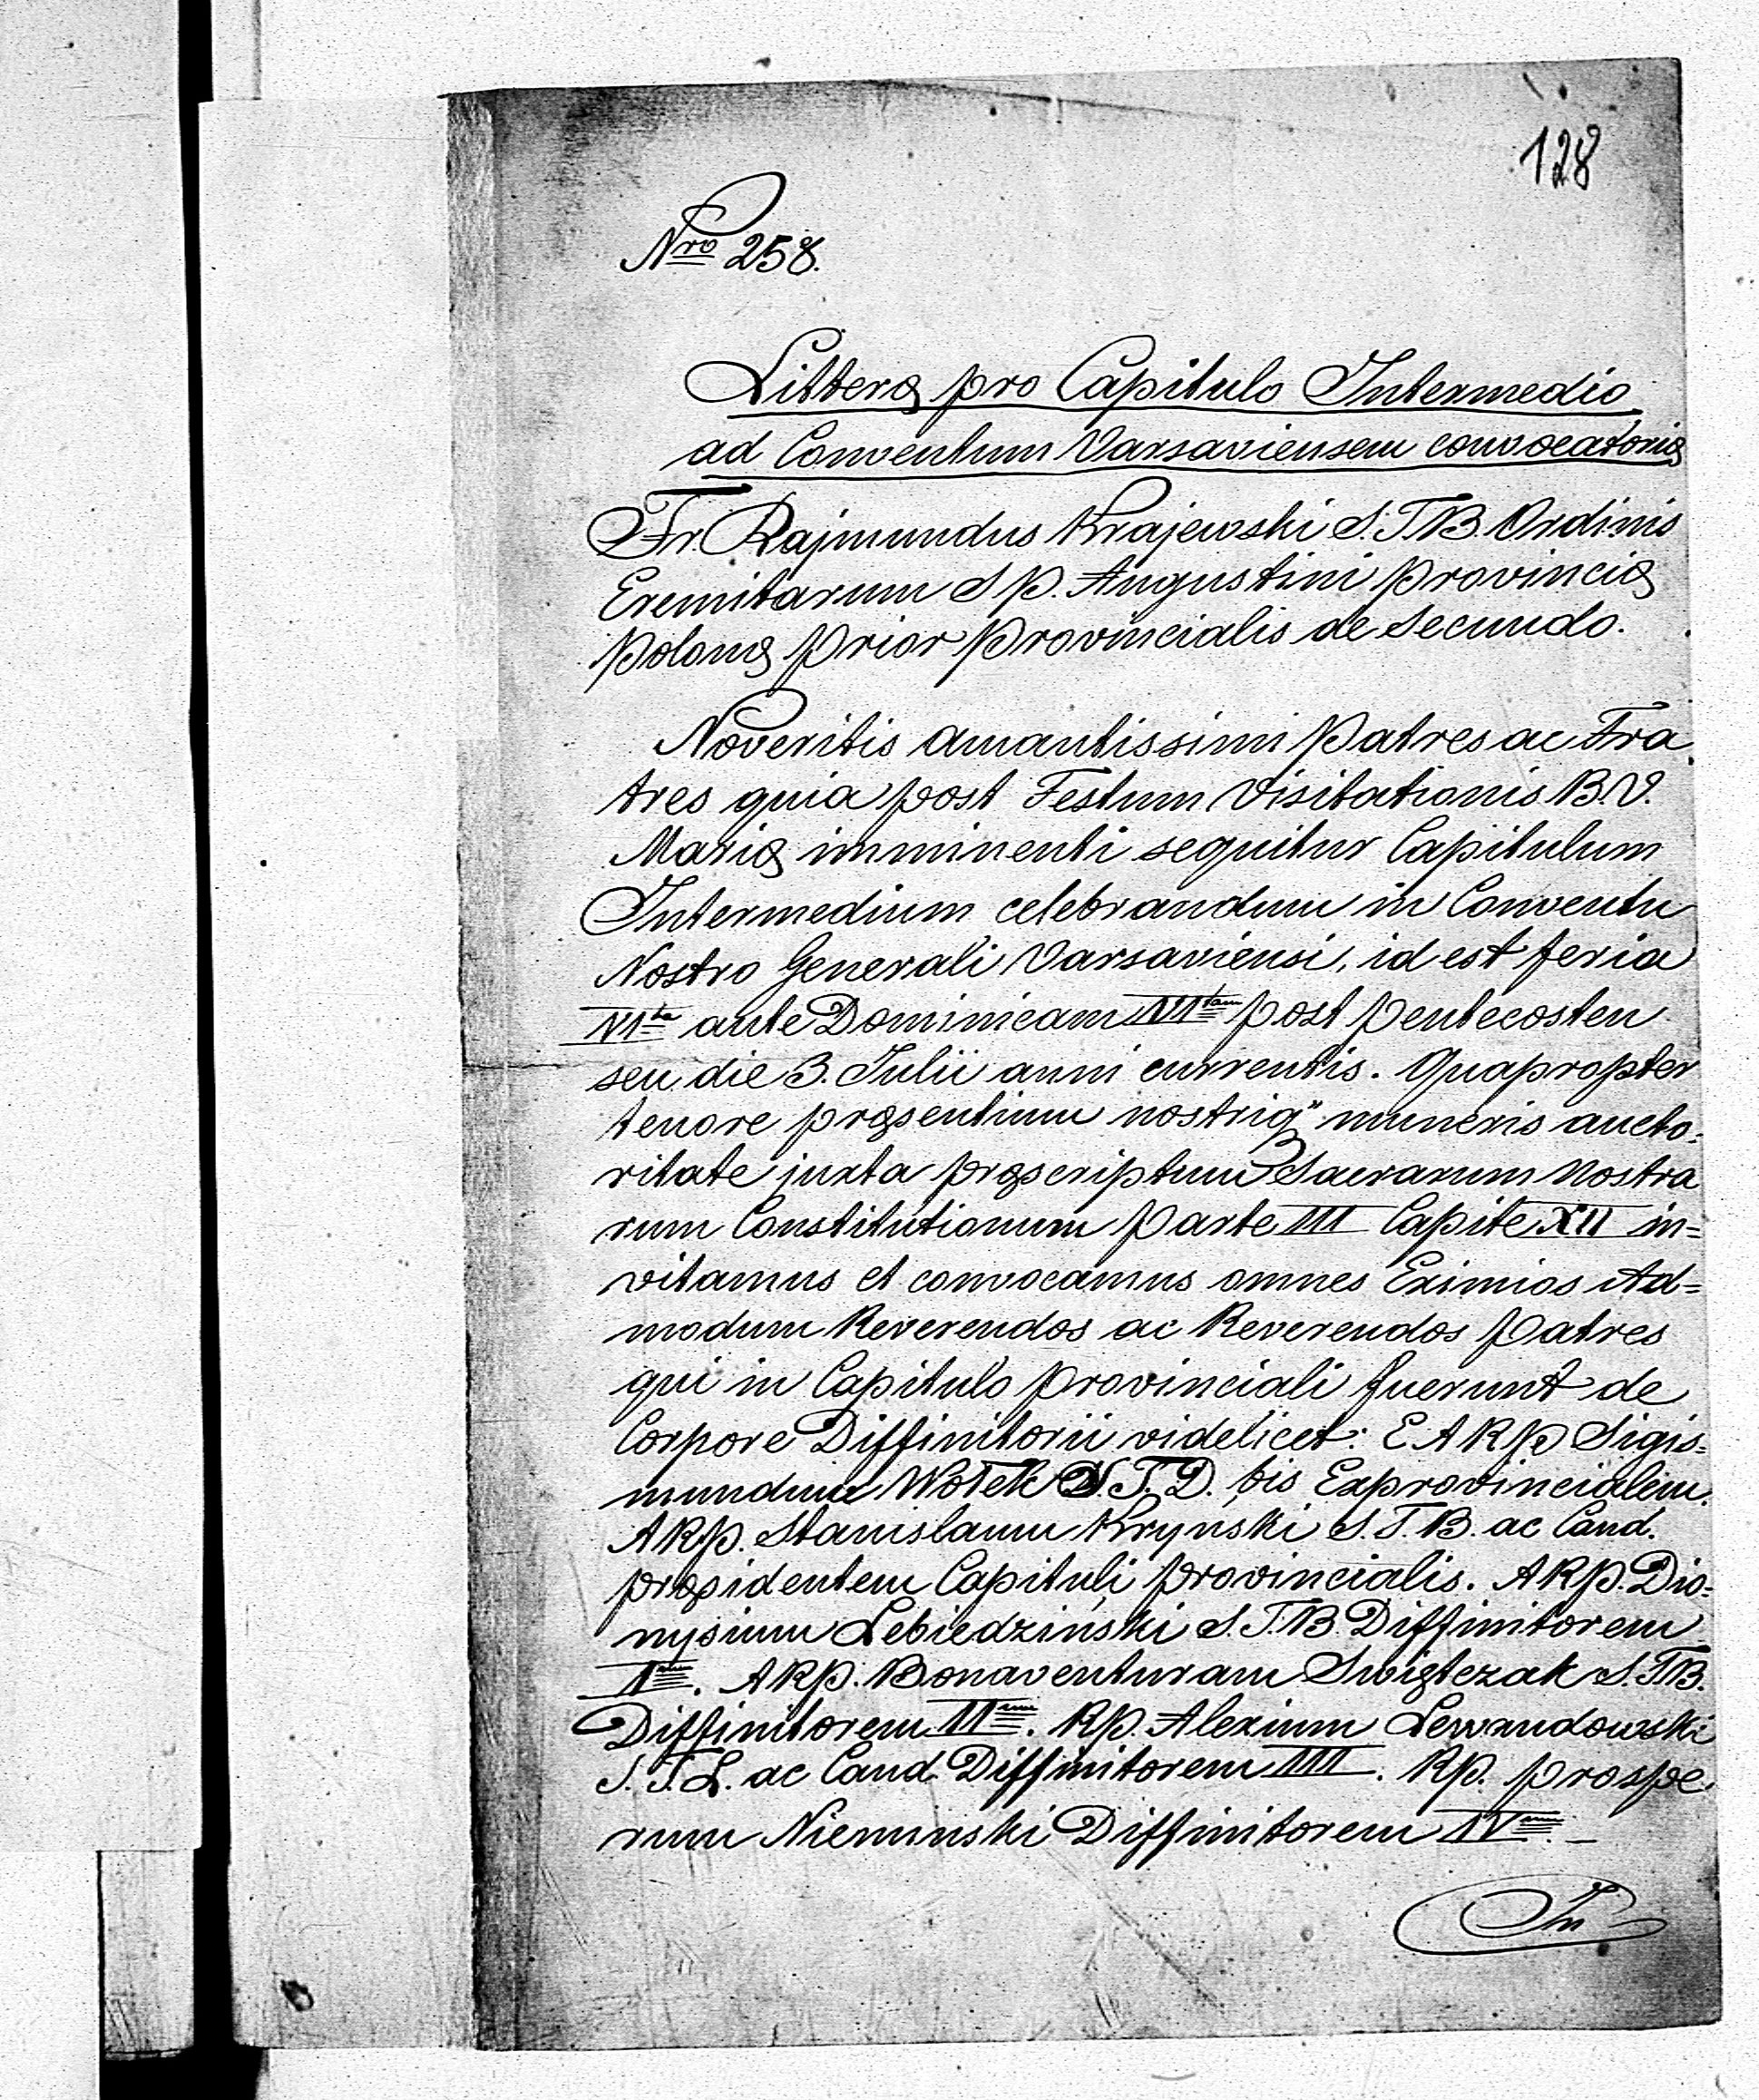 128
Nro 258.
Litteræ pro Capitulo Intermedio
ad Conventum Varsaviensem convocatoriæ
Fr. Rajmundus Krajewski S.T.B. Ordinis
Eremitarum S P. Augustini Provinciæ
Polonæ Prior Provincialis de Secundo.
Noveritis amantissimi Patres ac Fra
tres quia post Festum Visitationis B.V.
Mariæ imminenti sequitur Capitulum
Intermedium celebrandum in Conventu
Nostro Generali Varsaviensi, id est feria
VIta ante Dominicam VItam post Pentecosten
seu die 3. Julii anni currentis. Quapropter
tenore præsentium nostriq" muneris aucto:
ritate juxta præscriptum Sacrarum Nostra
rum Constitutionum Parte III Capite XII in=
vitamus et convocamus omnes Eximios Ad=
modum Reverendos ac Reverendos Patres
qui in Capitulo Provinciali fuerunt de
Corpore Diffinitorii videlicet: E A R P Sigis=
mundum Wołek S.T.D. bis Exprovincialem.
A R P. Stanislaum Kryński S.T.B. ac Cand.
Præsidentem Capituli Provincialis. A R P. Dio=
nysium Lebiedziński S.T.B. Diffinitorem
Imum. A R P. Bonaventuram Swiątczak S.T.B.
Diffinitorem IIum. R P. Alexium Lewandowski
S.T.L. ac Cand. Diffinitorem III. R P. Prospe:
rum Nieminski Diffinitorem IVum. –
In